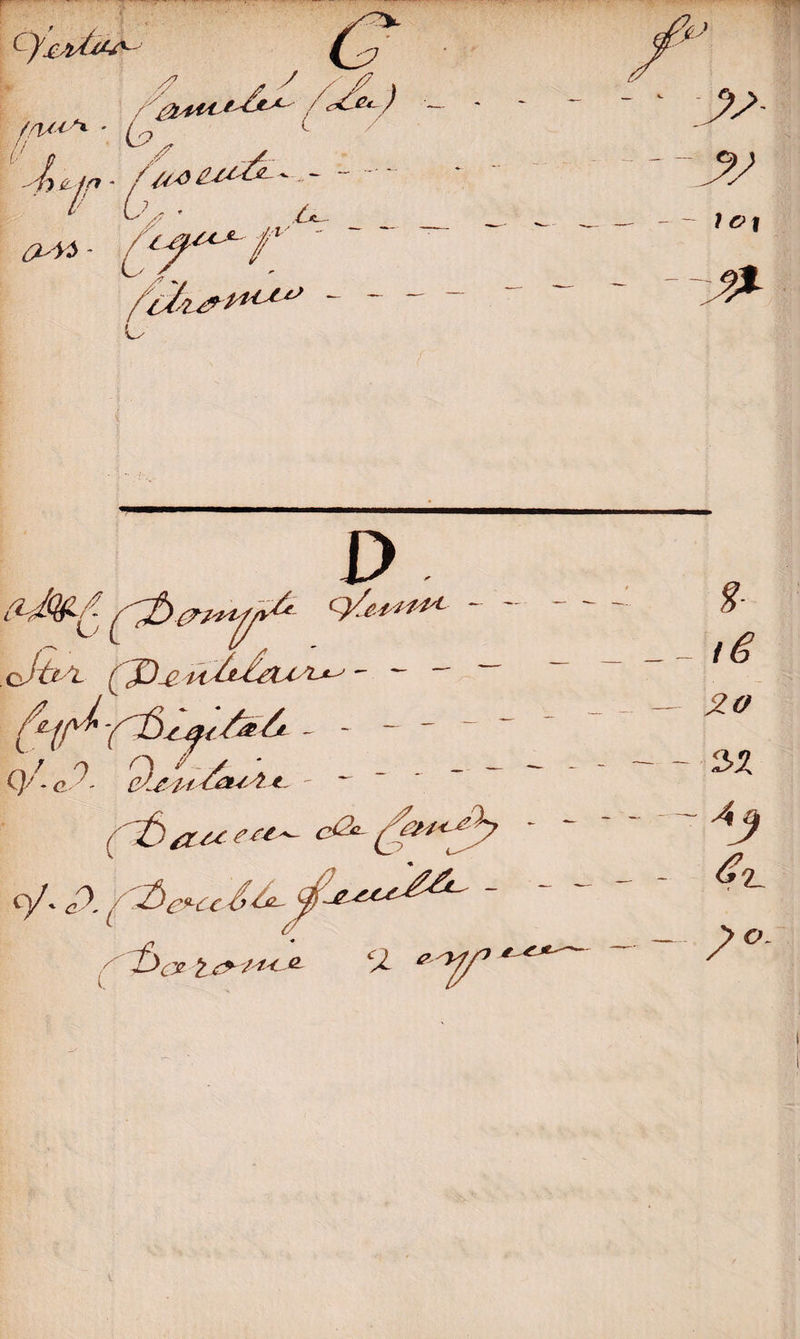 Vertus C fo
pur. Camelée (La) 97.
hep. Cuscute 97
ass. Cigue pte 101
Citronier 9
D.
Dompte Venin 8.
Dentelaire 16
Cep. Digitale 20
V. D. Dentaire 32
Daucus de Candy 49
V. D. Double feuille 62
Daronic 2 especes 70.